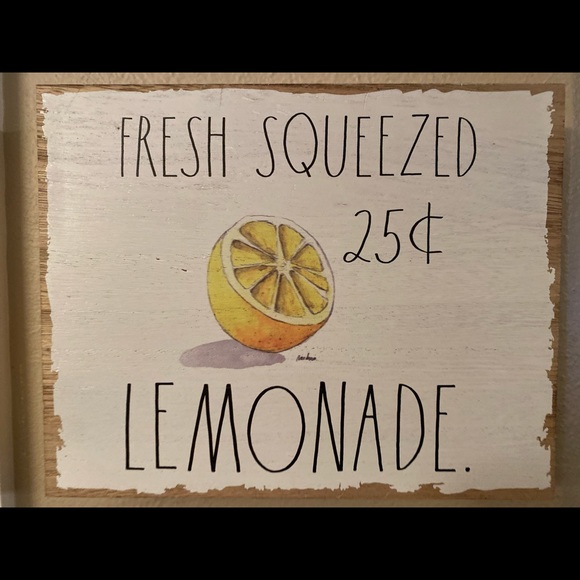 FRESH SQUEEZED
25¢
LEMONADE.